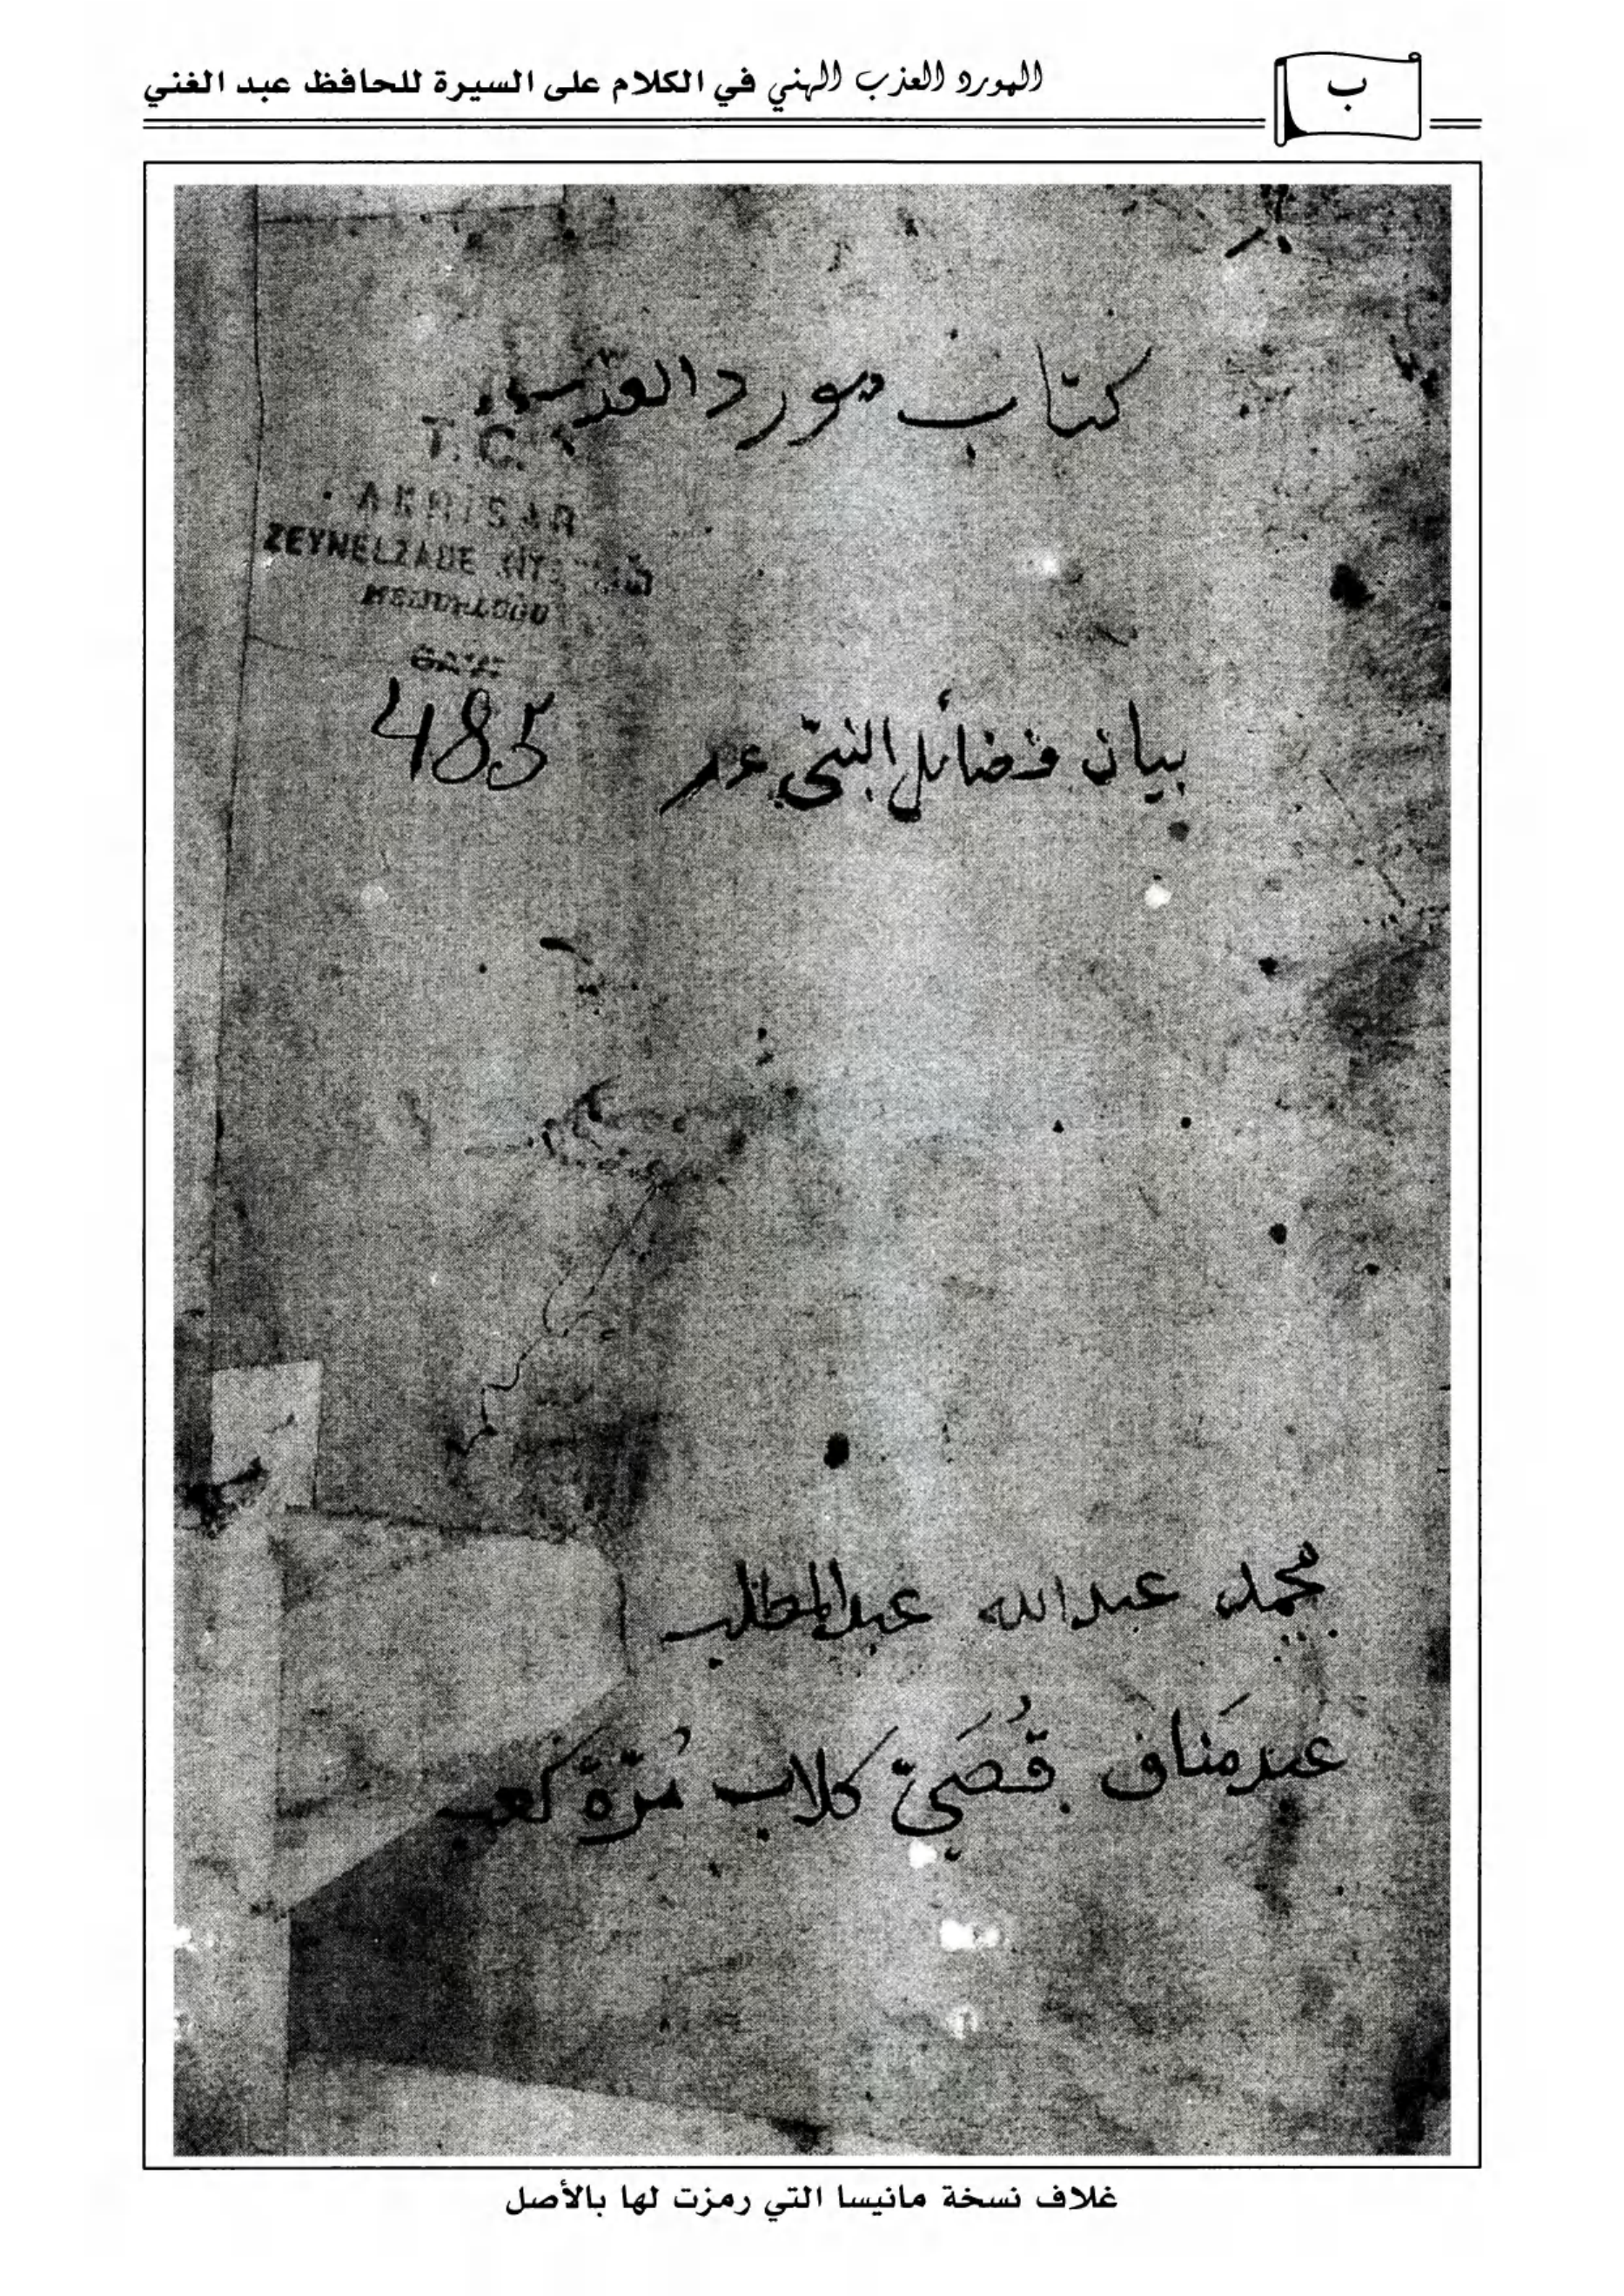 ب
المورد العذب الهني في الكلام على السيرة للحافظ عبد الغني
كتاب مورد العذب
T.C.
AKHİSAR
ZEYNELZADE
485
بيان فضائل النبي عم
محمد عبدالله عبدالمطلب
عبدمَناف قُصَيّ كلاب مُرّة كعب
غلاف نسخة مانيسا التي رمزت لها بالأصل